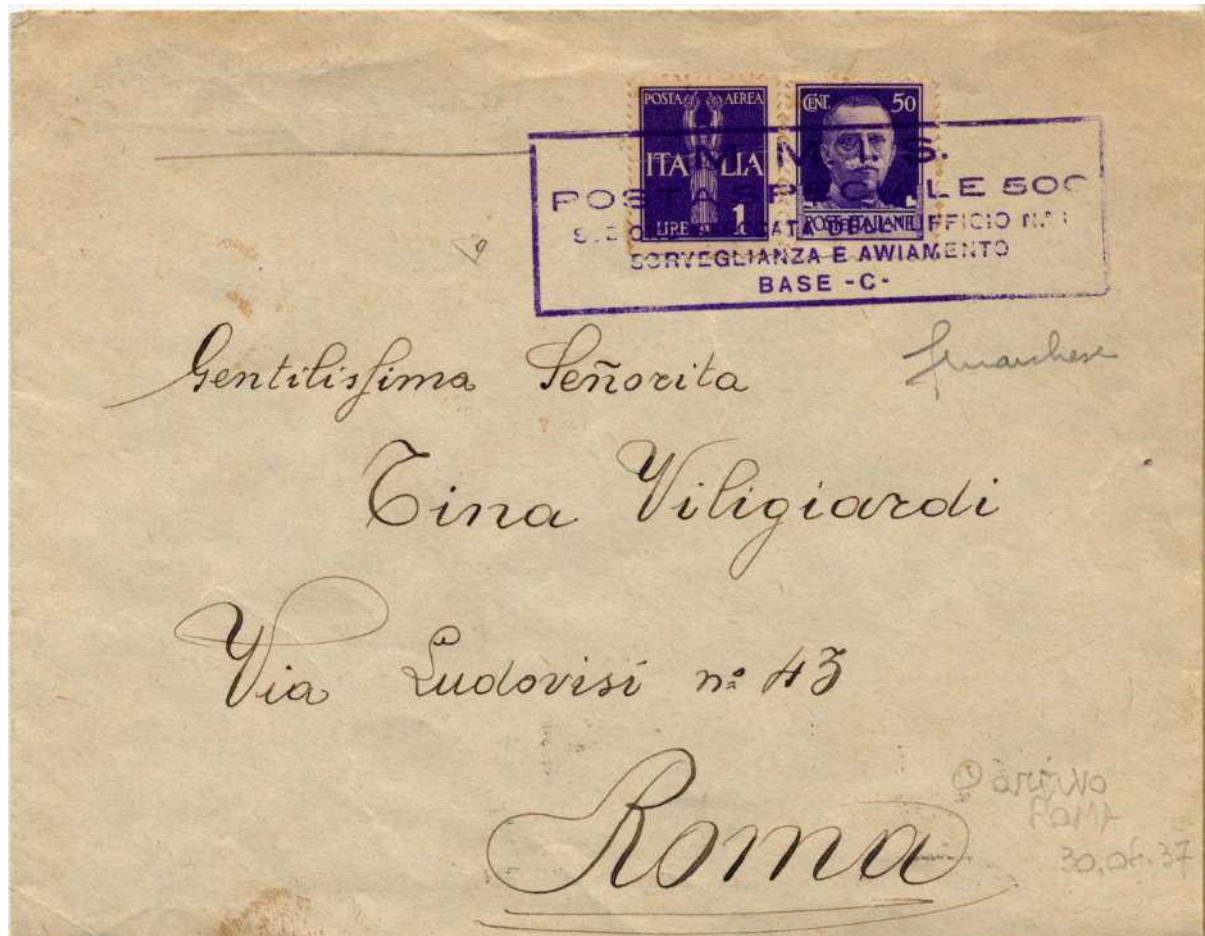 POSTA AEREA
ITALIA
LIRE 1
CENT. 50
POSTE ITALIANE
M. S.
POSTA SPECIALE 500
DELL' UFFICIO N.º 1
SORVEGLIANZA E AWIAMENTO
BASE -C-
Gentilissima Señorita
Tina Viligiardi
Via Ludovisi nº 43
Roma
ROMA